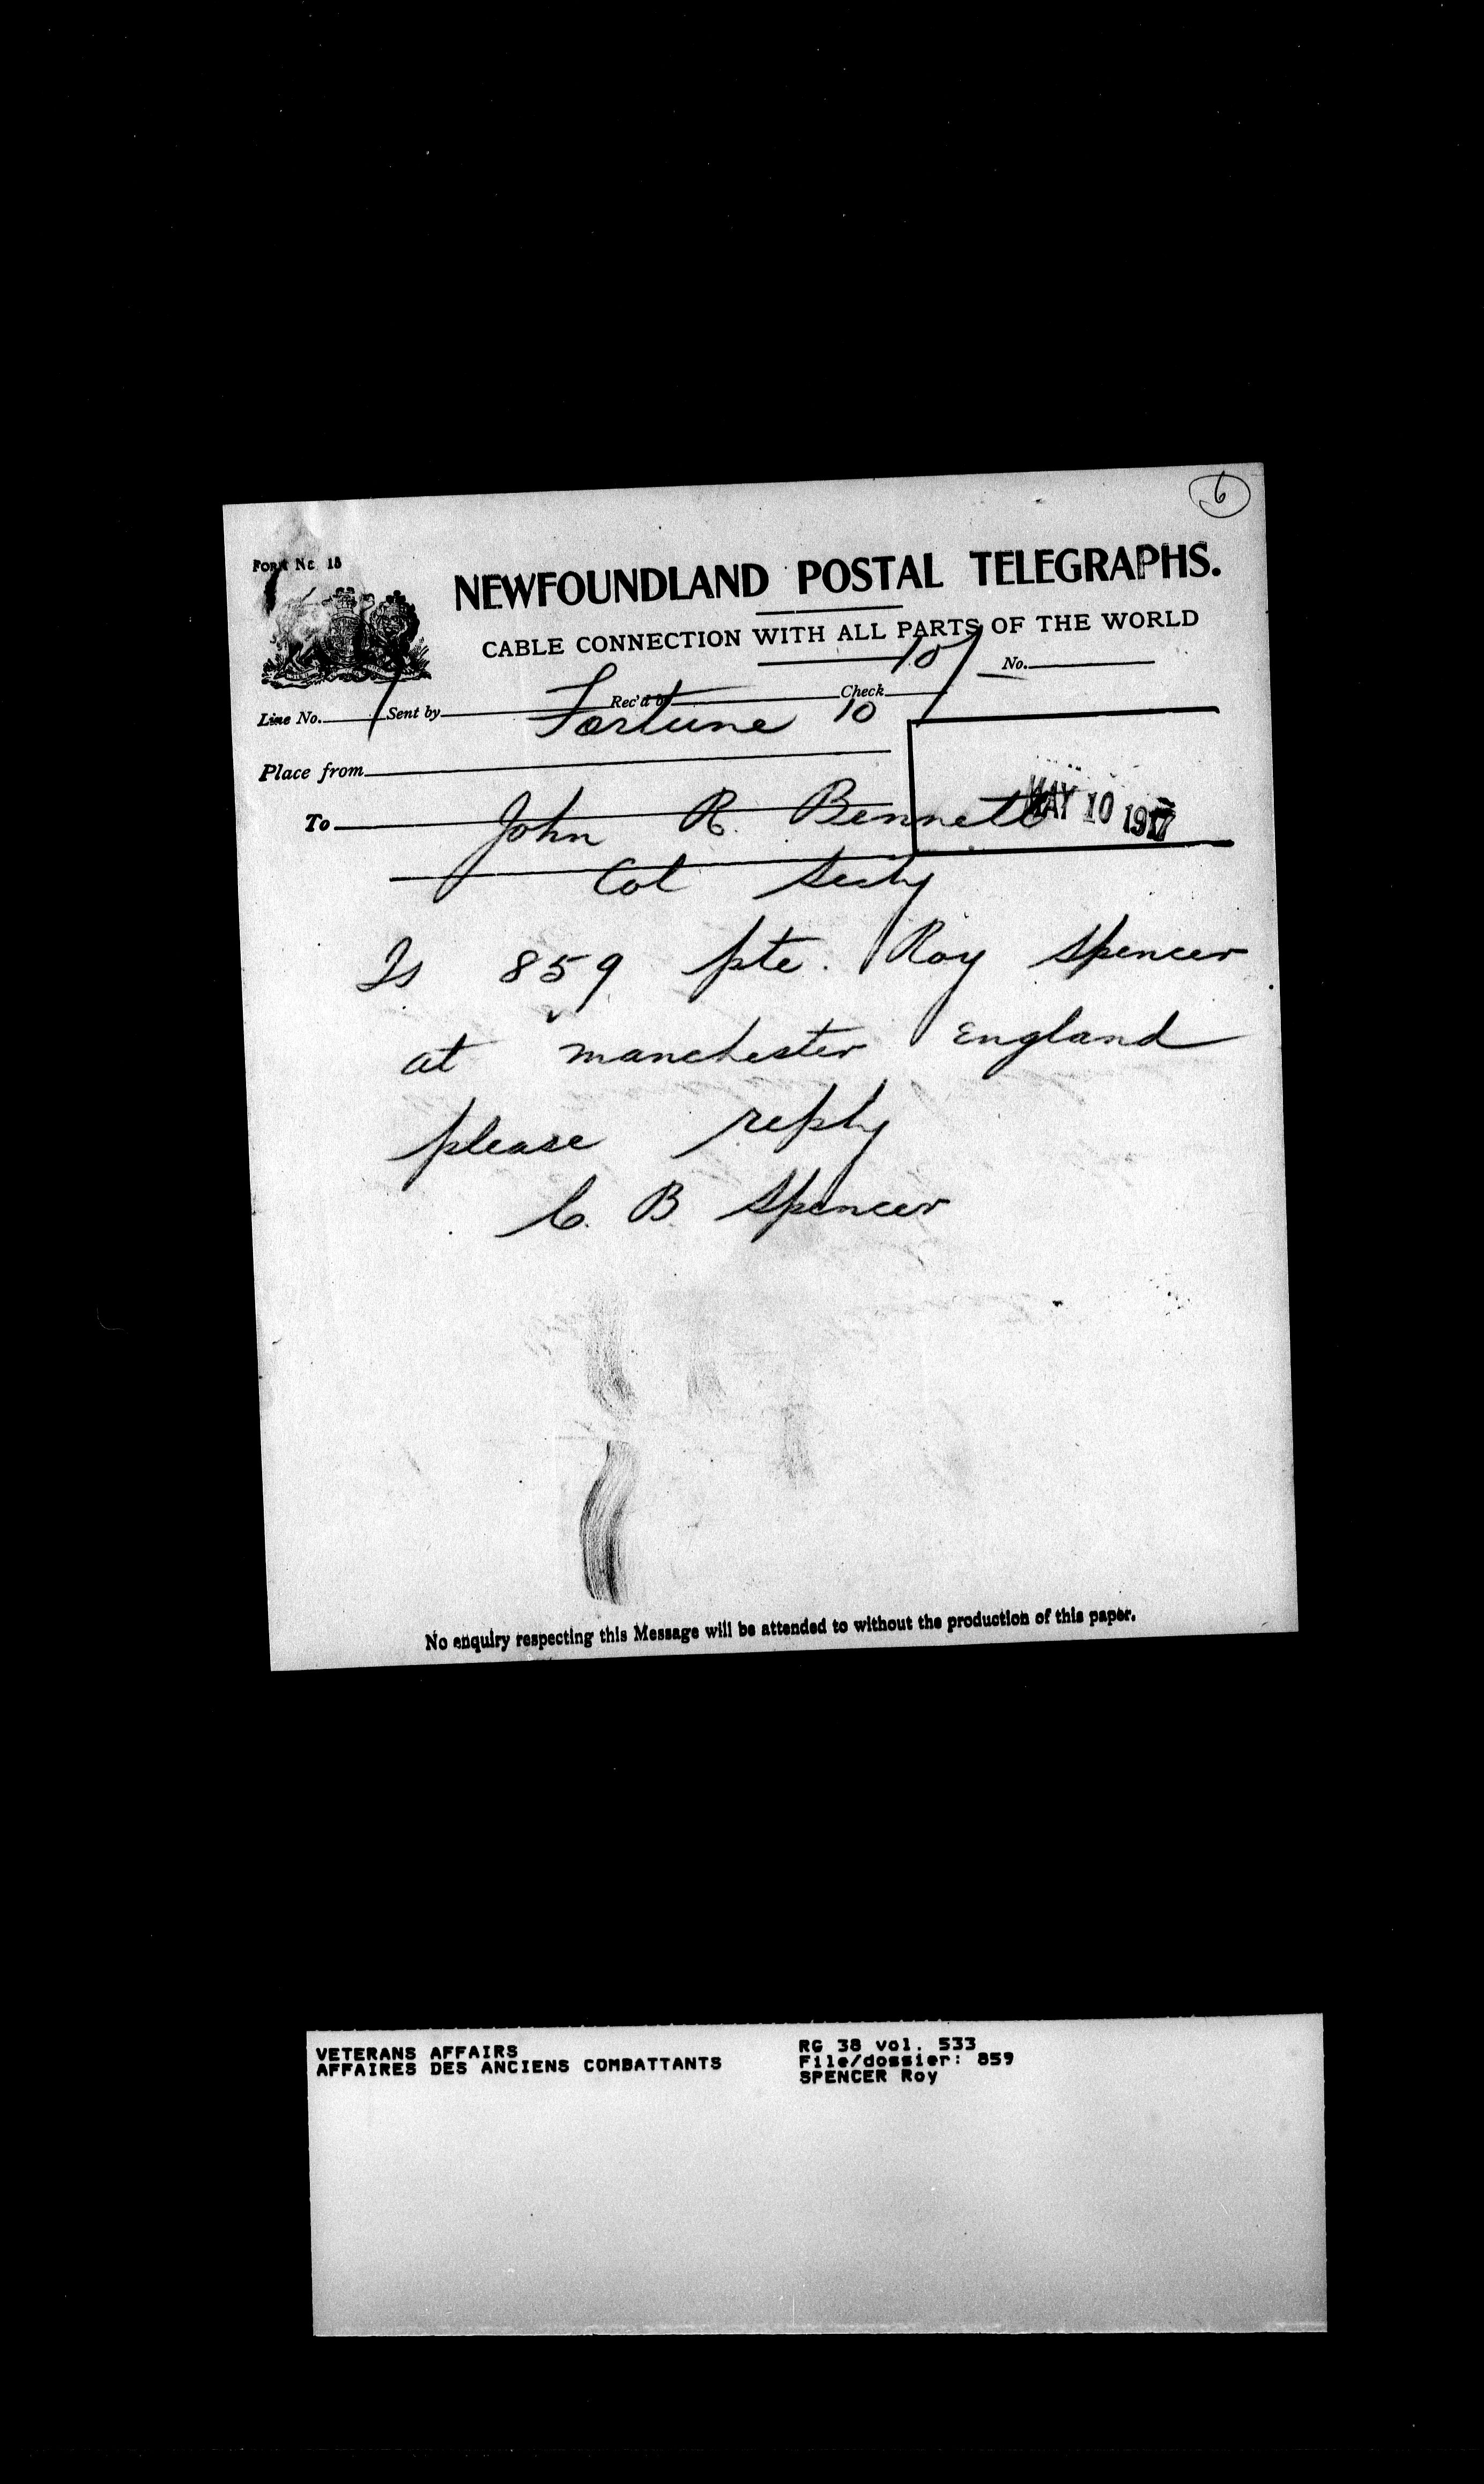 6
Form No. 18
NEWFOUNDLAND POSTAL TELEGRAPHS.
CABLE CONNECTION WITH ALL PARTS OF THE WORLD
Line No. Sent by Rec'd by Check 10/ No.
Place from Fortune 10
To John R. Bennett MAY 10 1917
Col Secty
Is 859 pte. Roy Spencer
at manchester England
please reply
C. B Spencer
No enquiry respecting this Message will be attended to without the production of this paper.
VETERANS AFFAIRS
AFFAIRES DES ANCIENS COMBATTANTS
RG 38 vol. 533
File/dossier: 859
SPENCER Roy